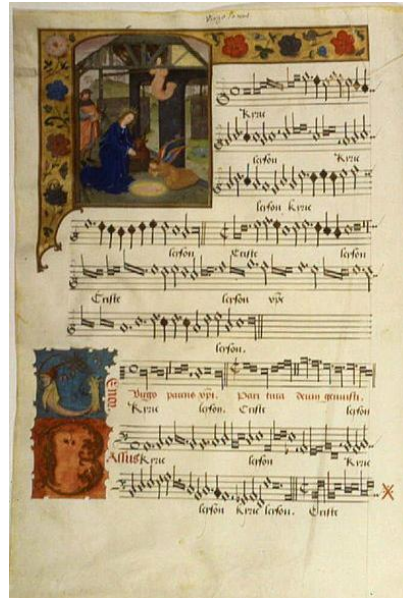 Kyrie
leyson Kyrie
leyson Kyrie
leyson Criste leyson
Criste leyson xpe
leyson.
Tenor
Virgo parens xpi. Pari tura deum genuisti.
Kyrie leyson. Criste leyson
Bassus Kyrie leyson Kyrie
leyson Kyrie leyson. Criste